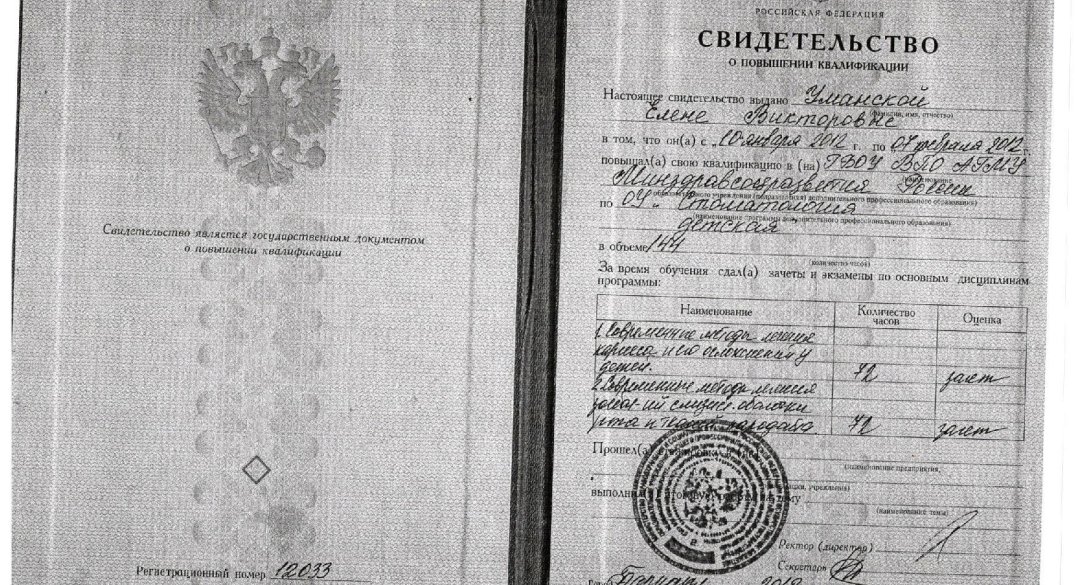 Свидетельство является государственным документом
о повышении квалификации
Регистрационный номер 12033
РОССИЙСКАЯ ФЕДЕРАЦИЯ
СВИДЕТЕЛЬСТВО
О ПОВЫШЕНИИ КВАЛИФИКАЦИИ
Настоящее свидетельство выдано Уманской
(фамилия, имя, отчество)
Елене Викторовне
в том, что он(а) с „10 января 2012 г. по 07 февраля 2012 г.
повышал(а) свою квалификацию в (на) ГБОУ ВПО АГМУ
(наименование
Минздравсоцразвития России
образовательного учреждения (подразделения) дополнительного профессионального образования)
по ОУ. Стоматология
(наименование программы дополнительного профессионального образования)
детская
в объеме 144
(количество часов)
За время обучения сдал(а) зачеты и экзамены по основным дисциплинам
программы:
Наименование Количество часов Оценка
1. Современные методы лечения
кариеса и его осложнений у
детей. 72 зачет
2. Современные методы лечения
слизист. оболочки
рта и тканей пародонта. 72 зачет
Прошел(а)
(наименование предприятия,
учреждения)
выполнил
(наименование темы)
Ректор (директор)
Секретарь